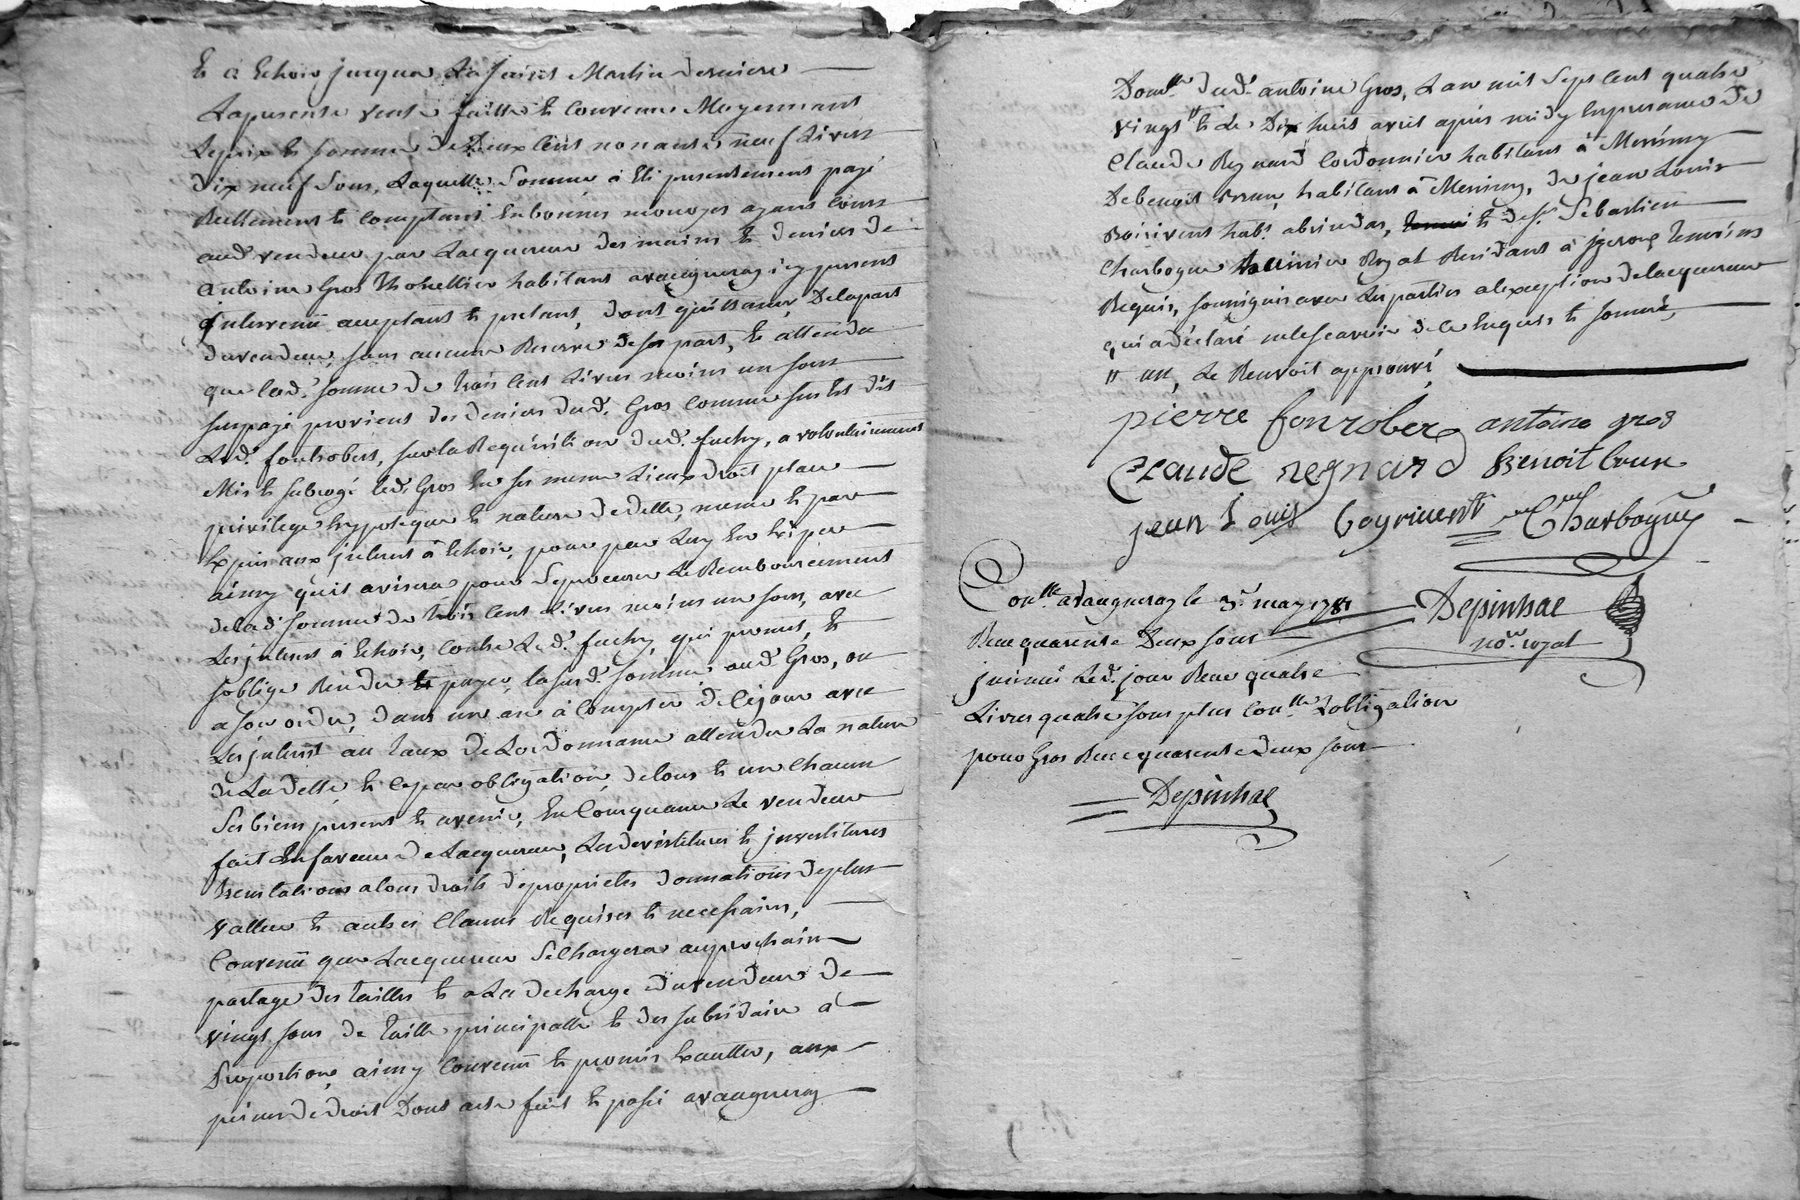 Et a Echoir jusqua La saint Martin derniere
Lapresente vente faitte Et convenue Moyennant
Leprix Et somme de Deux Cent nonante neuf Livres
dix neuf sous, Laquelle somme a Eté presentement payé
Reellement Et comptant En bonnes monoyes ayant cours
aud. vendeur par Lacquereur des mains Et deniers de
antoine Gros habitant avaugneray icy present
intervenu acceptant Et pretant, dont quittance, Delapart
duvendeur, sans aucune Reserve desa part, Et attendu
que lad. somme de trois cent Livres moins un sous
surpayé provient des deniers dud. Gros comme sus Est dit
Led. fontrobert, sur la Requisition dud. fuchy, a volontairement
Mis Et subrogé led. Gros En ses meme Lieux droit place
privilege hypoteque Et nature dedette, meme Et par
Expres aux interest à Echoir, pour par Luy En
ainsy quil avisera, pour Seprocurer Le Remboursement
delad. somme de trois cent Livres moins un sous, avec
Les interest à Echoir, contre Led. fuchy, qui promet, Et
soblige Rendre Et payer, lasusd. somme aud. Gros, ou
a son ordre, dans un an à compter de Cejour avec
Les interest au taux de Lordonnance attendu La nature
de La dette, Et Cepar obligation, de tous Et un chacun
Ses biens present Et avenir, En Consequance Le vendeur
fait En faveur de Lacquereur, Les devestitures Et investitures
tous droits de proprietés donnations deplus
valleur Et autres Clauses Requises Et necessaires,
Convenu que Lacquereur Se Chargera auprochain
partage des tailles Et a La decharge duvendeur de
vingt sous de taille principalle Et des subsidaire à
Proportion, ainsy convenu Et promis Exautter, aux
peines de droit Dont acte fait Et passé avaugneray
Domlle dud. antoine Gros, Lan mil Sept Cent quatre
vingt " Et Le Dix huit avril apres midy En presence de
Claude Regnard Cordonnier habitant à Messimy
De benoit brun, habitant à Messimy, de jean Louis
habt. abrindas, Et de Sr. Sebastien
Charbogne Royal Residant à jzeron, temoins
Requis, soussignés avec Les parties alexception delacquereur
qui a declaré nelesçavoir de ce Enquis Et sommé,
" un, Le Renvoit approuvé
pierre fonrobert antoine gros
Claude regnard Benoit brun
jean Louis Charbogne
Conlle avaugneray le 3e. may 1781 Depinhac
Recu quarente Deux sous nore. royal
insinué Led. jour Recu quatre
Livres quatre sous plus conlle Lobligation
pour Gros Recu quarente deux sous
Depinhac